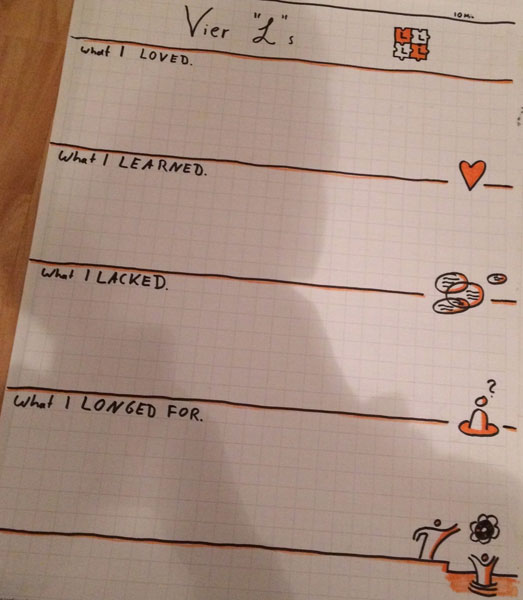 10 Min.
Vier "L" s
L L
L L
What I LOVED.
What I LEARNED.
What I LACKED.
?
What I LONGED FOR.